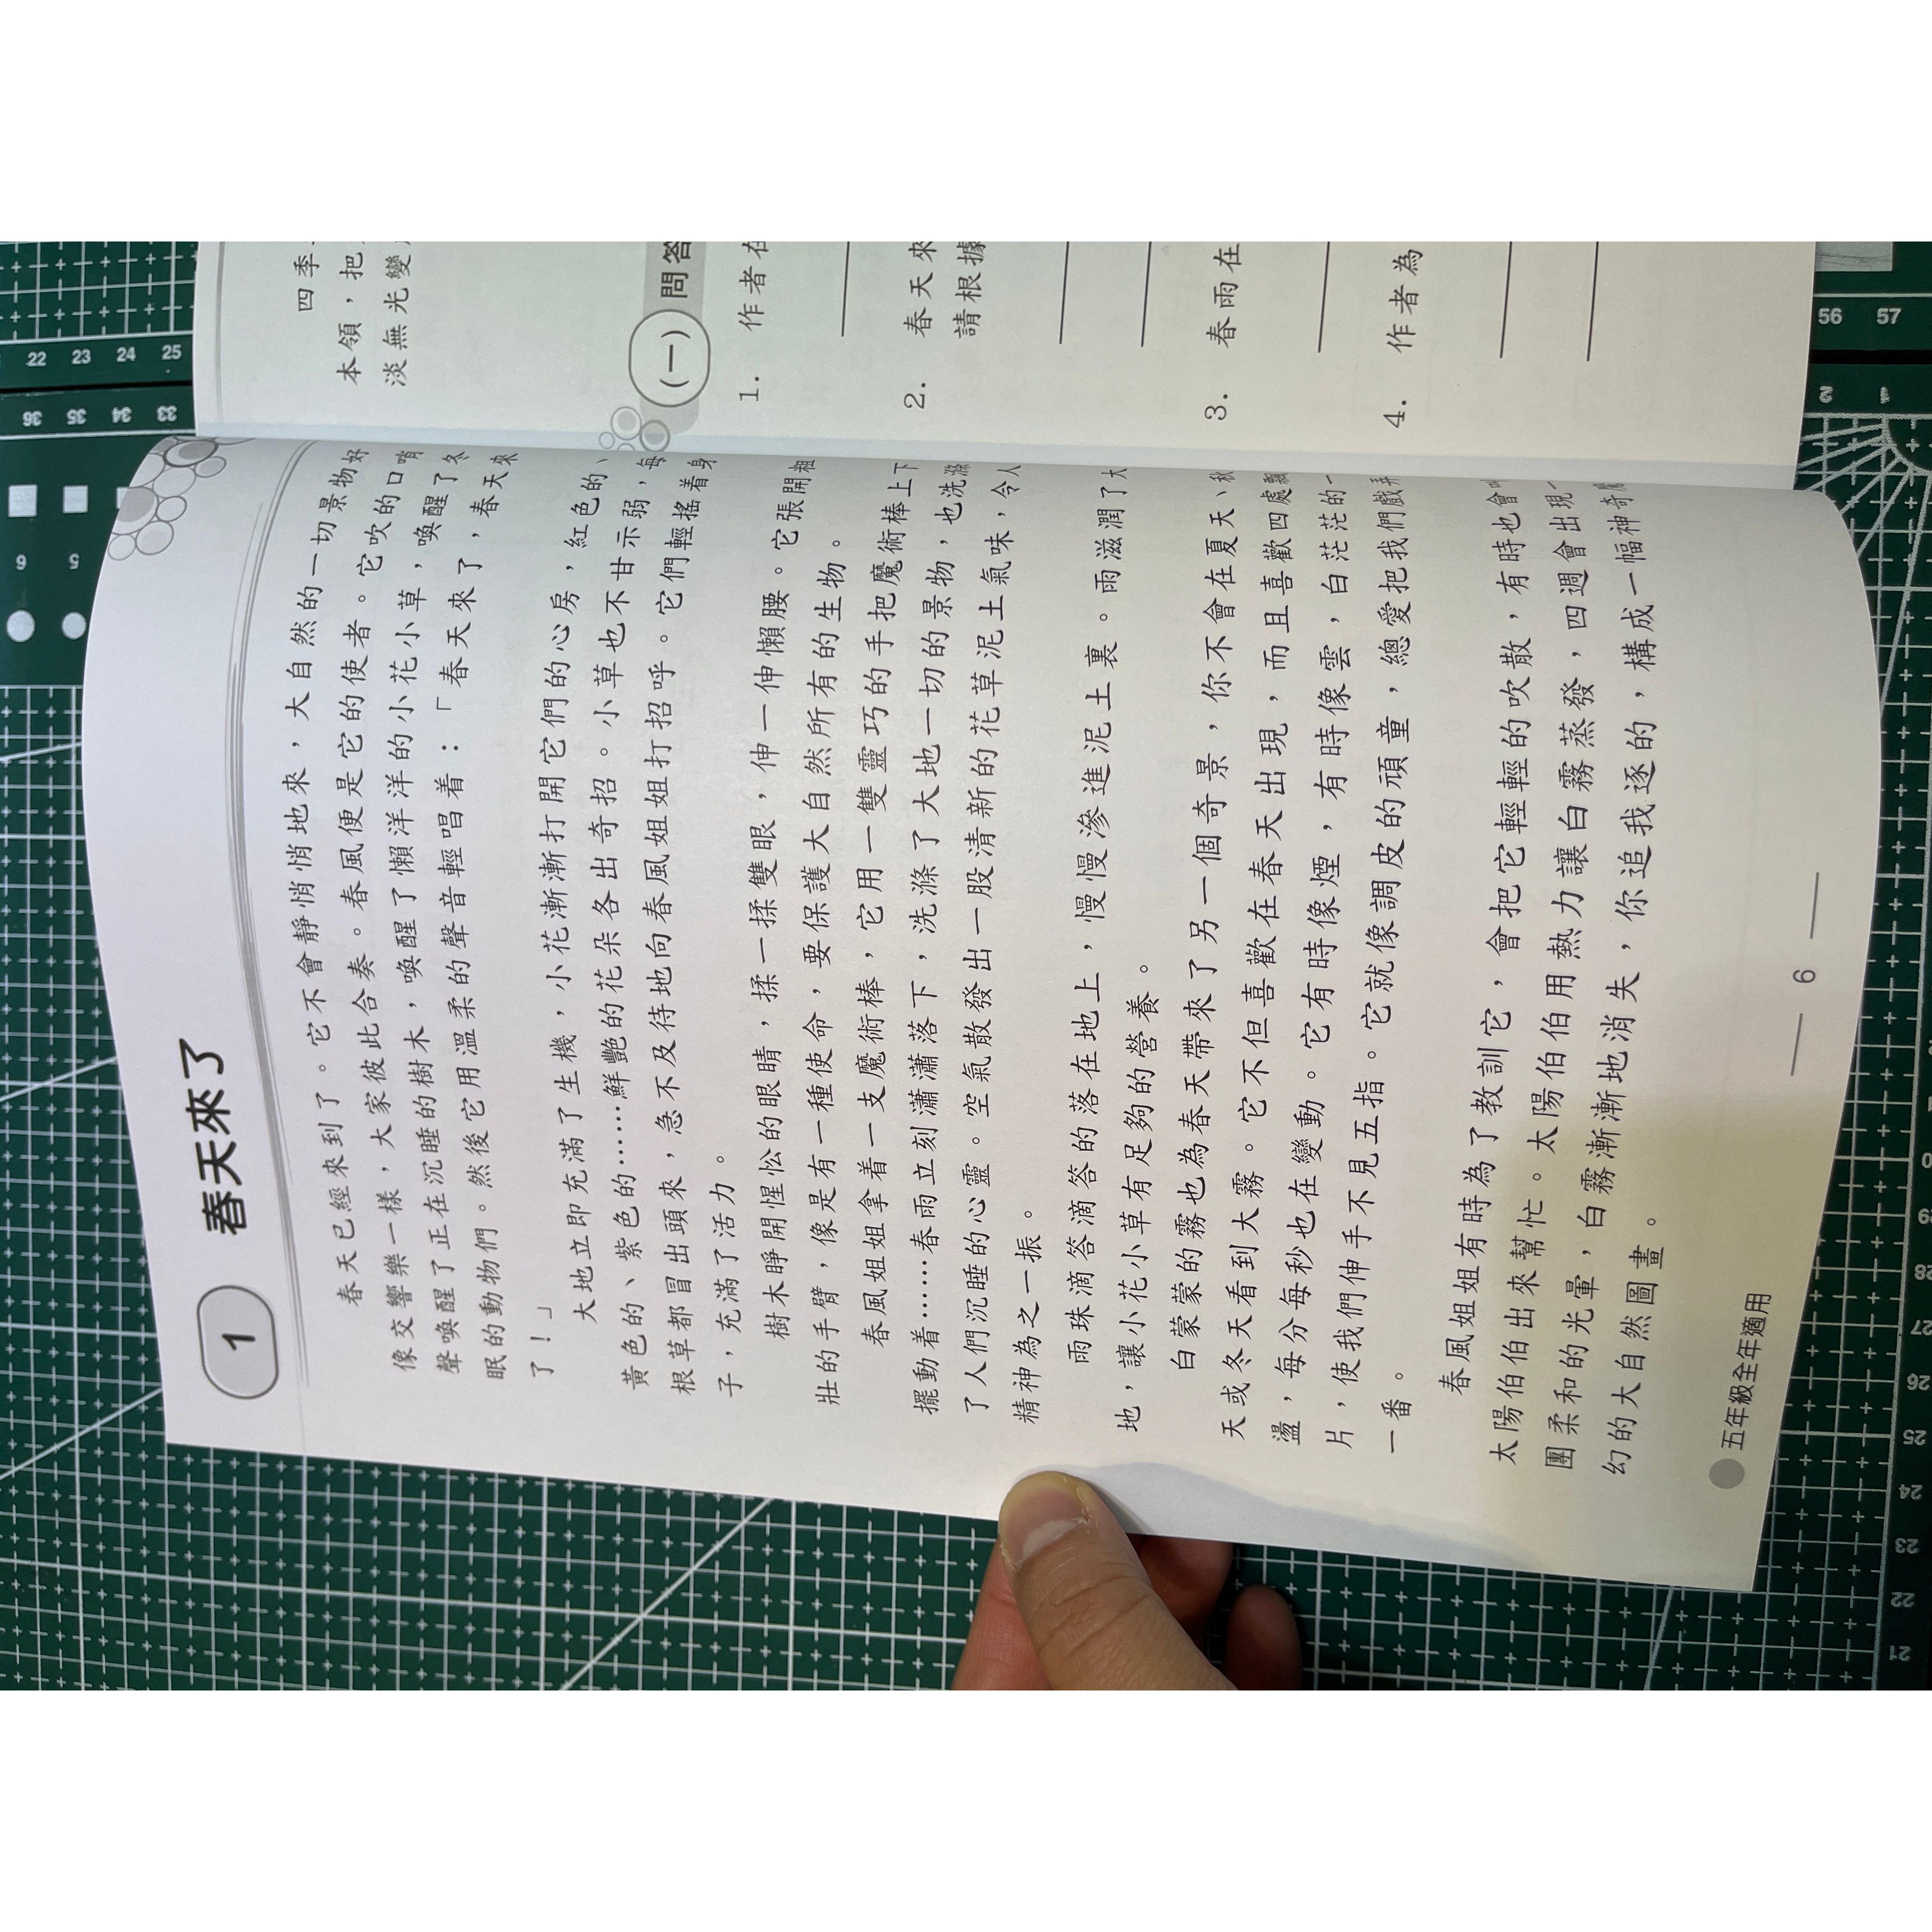 1 春天來了
春天已經來到了。它不會靜悄悄地來，大自然的一切景物好
像交響樂一樣，大家彼此合奏。春風便是它的使者。它吹的口哨
聲喚醒了正在沉睡的樹木，喚醒了懶洋洋的小花小草，喚醒了冬
眠的動物們。然後它用溫柔的聲音輕唱着：「春天來了，春天來
了！」
大地立即充滿了生機，小花漸漸打開它們的心房，紅色的、
黃色的、紫色的……鮮艷的花朵各出奇招。小草也不甘示弱，每
根草都冒出頭來，急不及待地向春風姐姐打招呼。它們輕搖着身
子，充滿了活力。
樹木睜開惺忪的眼睛，揉一揉雙眼，伸一伸懶腰。它張開粗
壯的手臂，像是有一種使命，要保護大自然所有的生物。
春風姐姐拿着一支魔術棒，它用一雙靈巧的手把魔術棒上下
擺動着……春雨立刻瀟瀟落下，洗滌了大地一切的景物，也洗滌
了人們沉睡的心靈。空氣散發出一股清新的花草泥土氣味，令人
精神為之一振。
雨珠滴答滴答的落在地上，慢慢滲進泥土裏。雨滋潤了大
地，讓小花小草有足夠的營養。
白蒙蒙的霧也為春天帶來了另一個奇景，你不會在夏天、秋
天或冬天看到大霧。它不但喜歡在春天出現，而且喜歡四處飄
盪，每分每秒也在變動。它有時像煙，有時像雲，白茫茫的一
片，使我們伸手不見五指。它就像調皮的頑童，總愛把我們戲弄
一番。
春風姐姐有時為了教訓它，會把它輕輕的吹散，有時也會叫
太陽伯伯出來幫忙。太陽伯伯用熱力讓白霧蒸發，四週會出現一
團柔和的光暈，白霧漸漸地消失，你追我逐的，構成一幅神奇魔
幻的大自然圖畫。
五年級全年適用
6
四季
本領，把
淡無光變
(一) 問答
1. 作者在
2. 春天來
請根據
3. 春雨在
4. 作者為
22 23 24 25
36 35 34 33
6 5
56 57
2 1
28
27
26
25
24
23
22
21